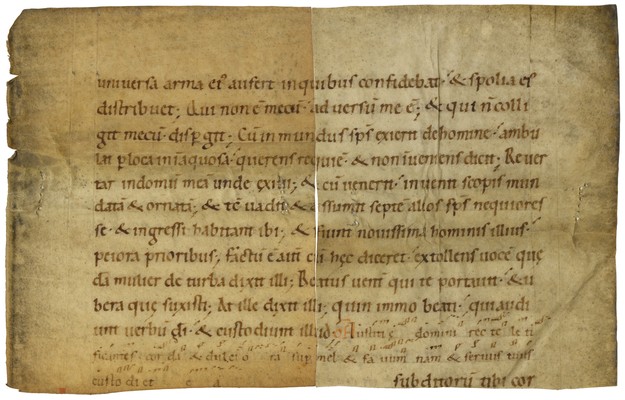 universa arma ei᷒ aufert in quibus confidebat· & spolia ei᷒
distribuet; Qui non ē mecū· adversū me ē; & qui ñ colli
git mecū· disp̱git; Cū inmundus sp̄s exierit dehomine· ambu
lat p̱ loca inaquosa· querens requiē· & non inveniens dicit; Rever
tar indomū meā unde exivi; & cū venerit· invenit scopis mun
datā & ornatā; & tc̄ vadit & assumit septē alios sp̄s nequiores
se· & ingressi habitant ibi; & fiunt novissima hominis illius·
peiora prioribus; Factū ē aūt cū hęc diceret· extollens vocē quę
dā mulier de turba dixit illi; Beatus venter qui te portavit· & u
bera quę suxisti; At ille dixit illi; quin immo beati· qui audi
unt verbū d̄i· & custodiunt illud· Iustitię domini recte le ti
ficantes corda & dulcio ra super mel & fa vum nam & servus tuus
custo di et e a
subditorū tibi cor